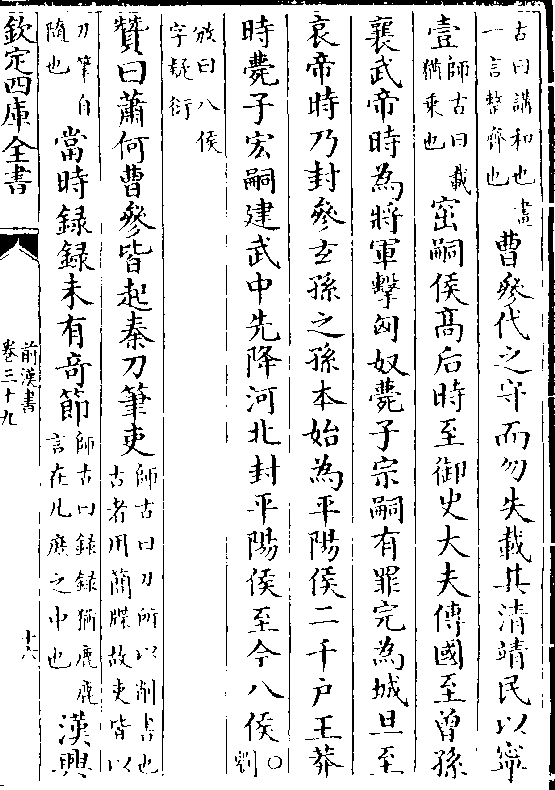 古曰講和也畫
一言整齊也
曹參代之守而勿失載其清靖民以寧
壹
師古曰載
猶乘也
窋嗣侯髙后時至御史大夫傳國至曾孫
襄武帝時為將軍擊匈奴薨子宗嗣有罪完為城旦至
哀帝時乃封參𤣥孫之孫本始為平陽侯二千户王莽
時薨子宏嗣建武中先降河北封平陽侯至今八侯
○劉
攽曰八侯
字疑衍
贊曰蕭何曹參皆起秦刀筆吏
師古曰刀所以削書也
古者用簡牒故吏皆以
刀筆自
隨也
當時録録未有竒節
師古曰録録猶鹿鹿
言在凡庶之中也
漢興
欽定四庫全書
前漢書
卷三十九
十六